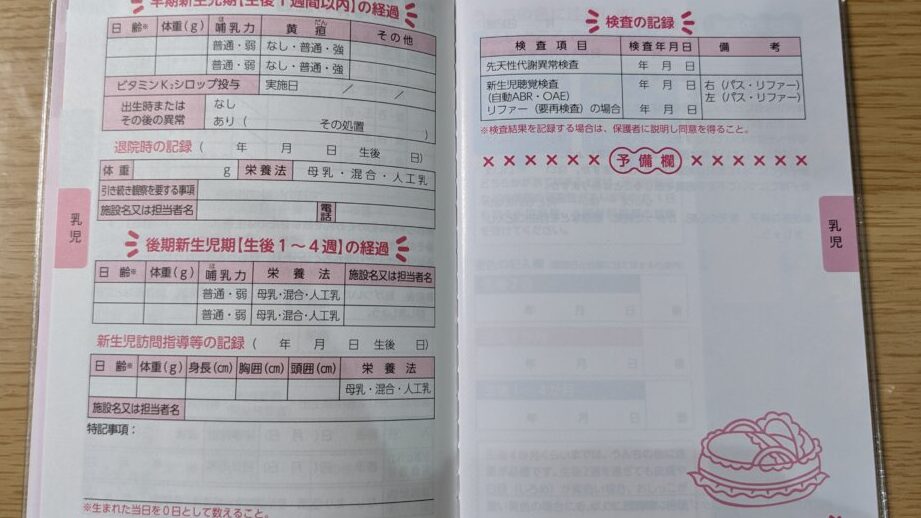 早期新生児期【生後1週間以内】の経過
日 齢※ 体重(g) 哺乳力 黄疸 その他
普通・弱 なし・普通・強
普通・弱 なし・普通・強
ビタミンK₂シロップ投与 実施日 / /
出生時または なし
その後の異常 あり( その処置 )
退院時の記録( 年 月 日 生後 日)
体重 g 栄養法 母乳・混合・人工乳
引き続き観察を要する事項
施設名又は担当者名 電話
後期新生児期【生後1〜4週】の経過
日 齢※ 体重(g) 哺乳力 栄養法 施設名又は担当者名
普通・弱 母乳・混合・人工乳
普通・弱 母乳・混合・人工乳
新生児訪問指導等の記録( 年 月 日 生後 日)
日 齢※ 体重(g) 身長(cm) 胸囲(cm) 頭囲(cm) 栄養法
母乳・混合・人工乳
施設名又は担当者名
特記事項:
※生まれた当日を0日として数えること。
乳児
検査の記録
検査項目 検査年月日 備考
先天性代謝異常検査 年 月 日
新生児聴覚検査 年 月 日 右(パス・リファー)
(自動ABR・OAE) 左(パス・リファー)
リファー(要再検査)の場合 年 月 日
※検査結果を記録する場合は、保護者に説明し同意を得ること。
予備欄
乳児